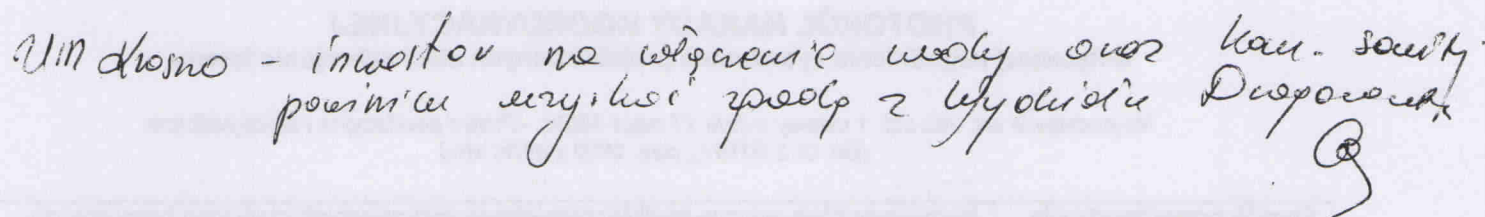 UM Krosno - inwestor na włączenie wody oraz kan. sanit.
powinien uzyskać zgodę z Wydziału Drogownictwa